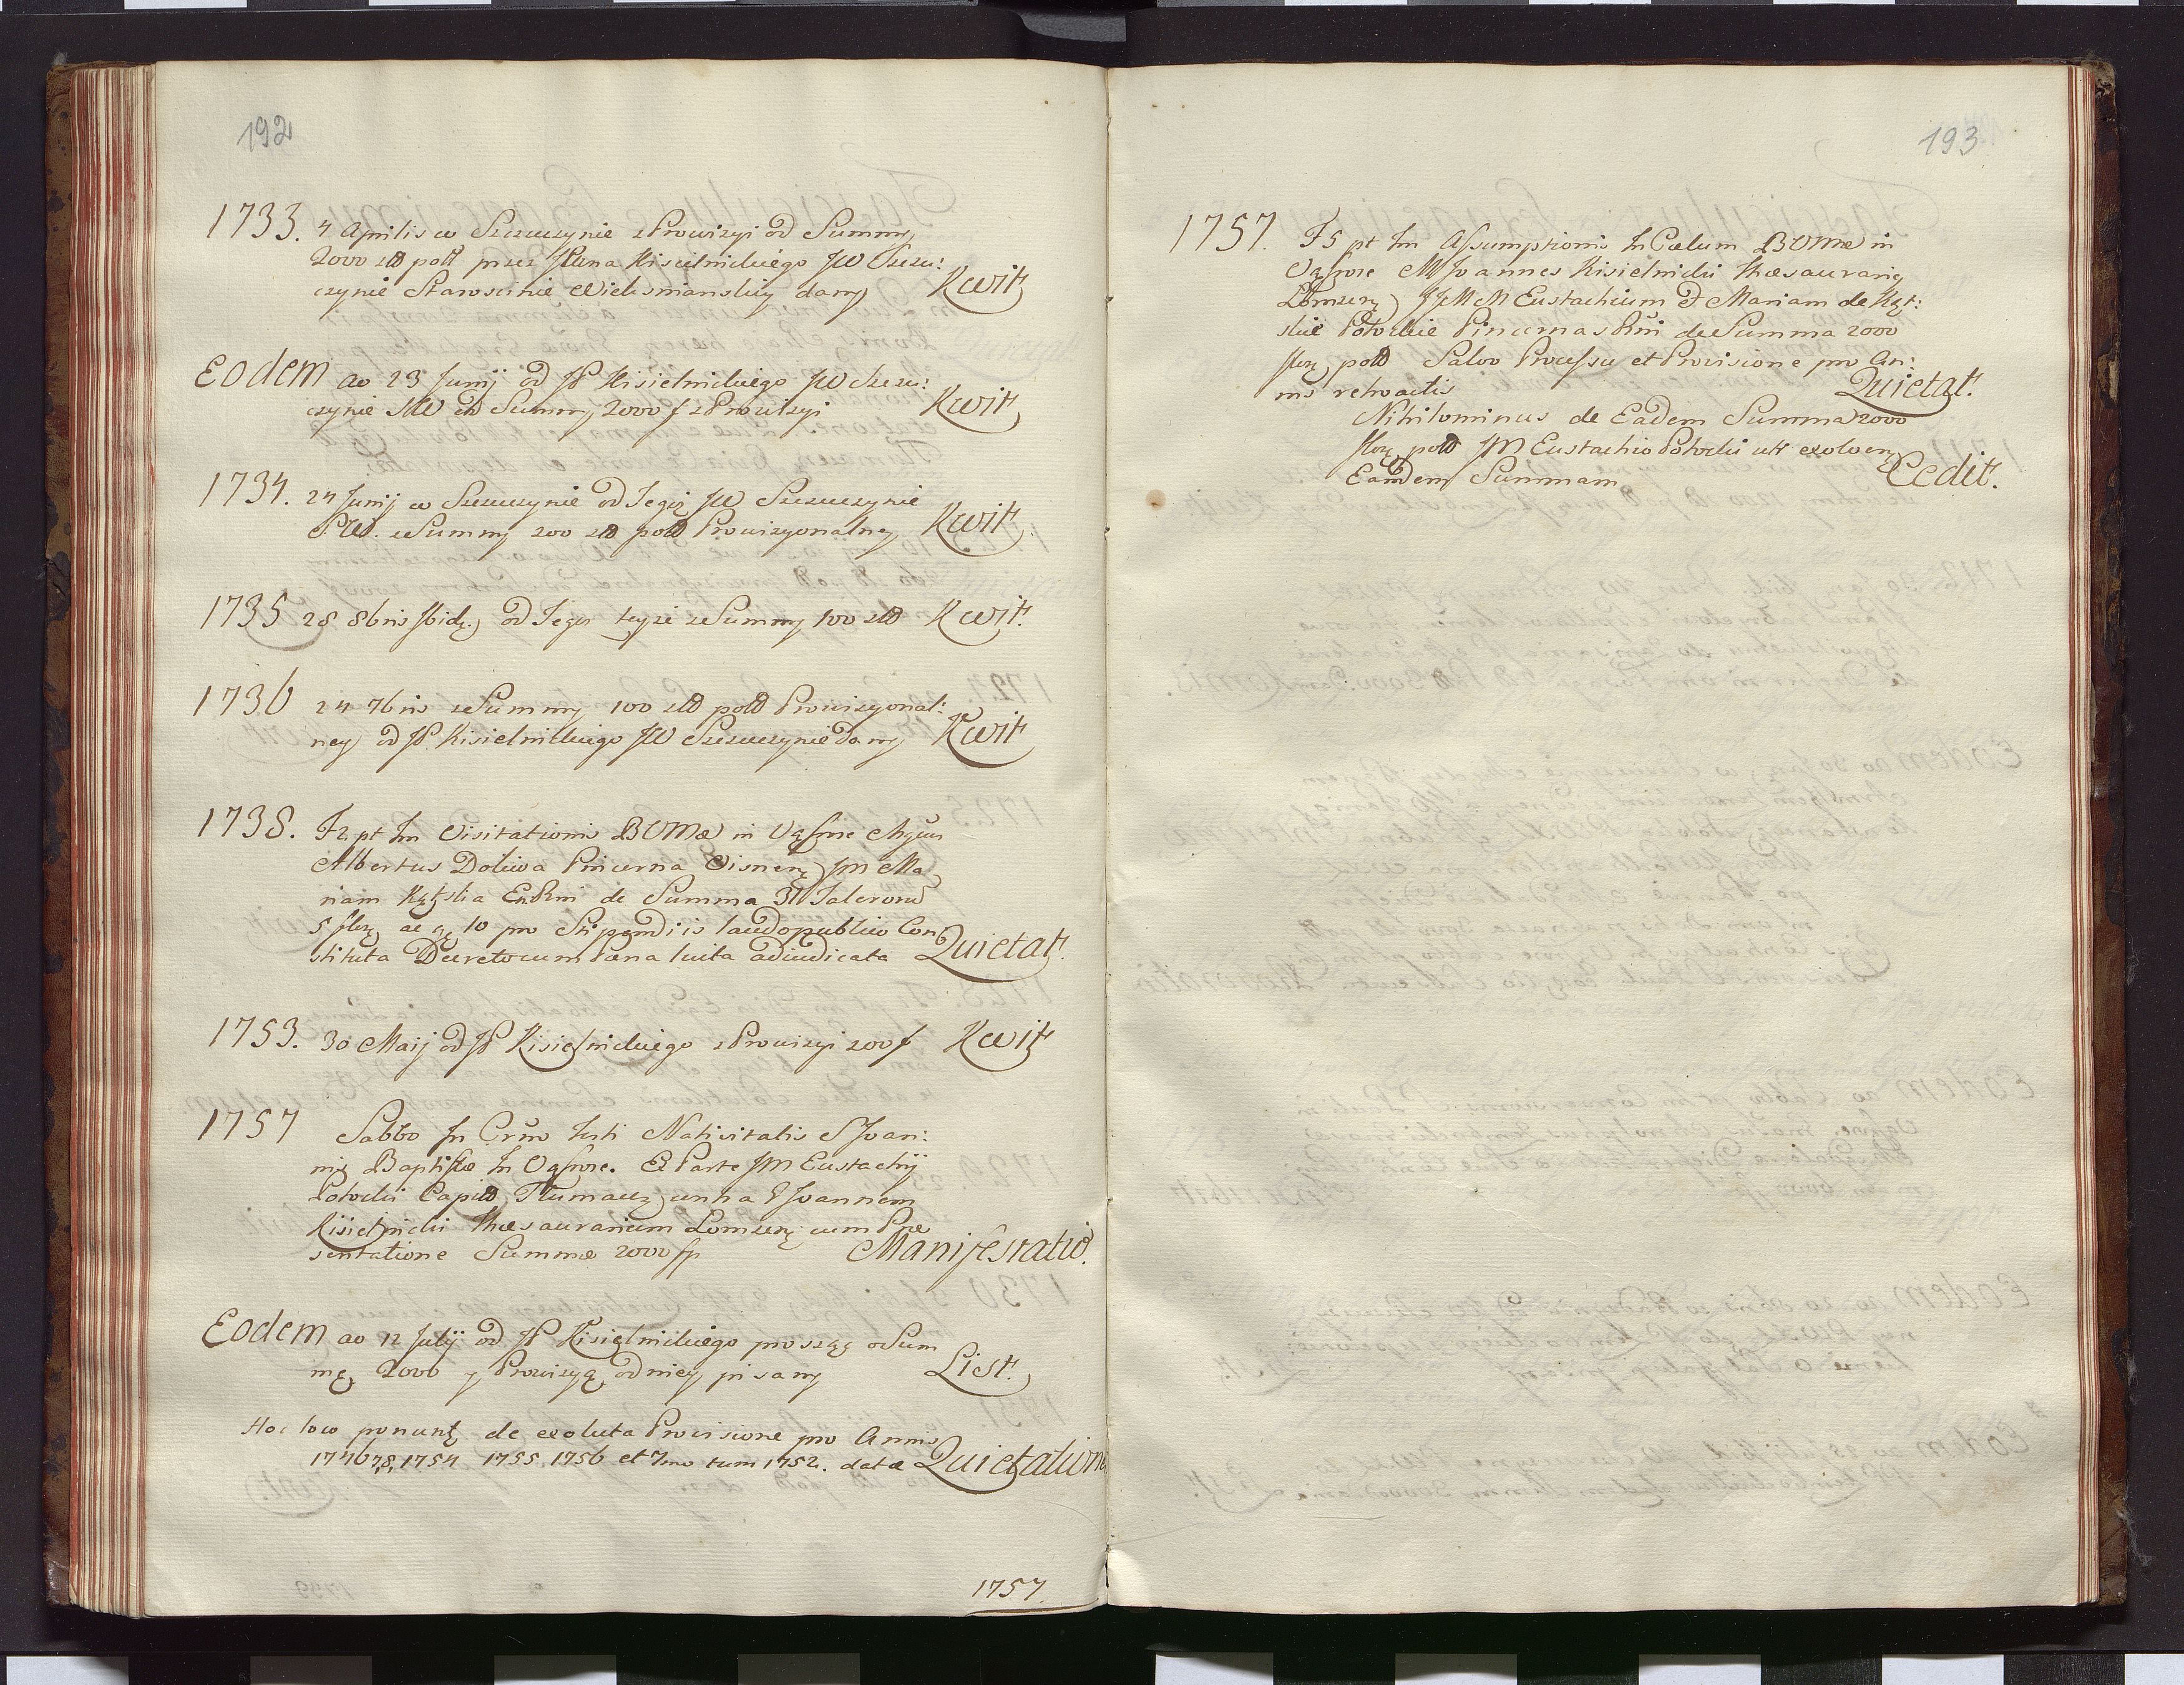 192
1733. 4 Aprilis w Szczuczynie z Prowizyi od Summy
2000 zł pol przez JPana Kisielnickiego JW Szczu:
czynie Starościnie Wieloniańskiey dany Kwit
Eodem ao 23 Junij od JP Kisielnickiego JW Szczu:
czynie SW od Summy 2000 f z Prowizyi Kwit
1734. 24 Junij w Szczuczynie od Tegoż JW Szczuczynie
S.W. z Summy 200 zł pol Prowizyonalney Kwit
1735 28 8bris Ibidę. od Tegoż teyże z Summy 100 zł Kwit.
1736 24 7bris z Summy 100 zł pol Prowizyonal:
ney od JP. Kisielnickiego JW Szczuczynie dany Kwit
1738. F2 pt Fm Visitationis BVMæ in Vąsosze
Albertus Doliwa Pincerna Visneń JM Ma
riam Kątska de Summa 31 Talerow
5 flor ac gę 10 pro Stipendiis laudo publico Con
stituta Decretorum Pæna luita adiudicata Quietat.
1753. 30 Maij od JP Kisielnickiego z Prowizyi 200 f Kwit
1757 Sabbo In Crno festi Nativitatis S Joan:
nis Baptistæ In Vąsosze. Ex Parte JM Eustachij
Potocki Capit Tłumacz contra Joannem
Kisielnicki Thesaurarium Łomzeń cum Præ
sentatione Summæ 2000 fp Manifestatio.
Eodem ao 12 Julij od JP Kisielnickiego prosząę o Sum
mę 2000 y Prowizyą od niey pisany List.
Hoc loco ponunt de exoluta Provisione pro Annis
1746, 78, 1754 1755 1756 et 7mo tum 1752. datæ Quietatione
1757.
193
1757. F5 pt Fm Assumptionis In Cælum BVMæ in
Vąsosze M Joannes Kisielnicki Thesaurariq
Łomzeń JJMM Eustachium & Mariam de Kąt:
skie Potockie Pincernas Rni de Summa 2000
flor pol Salvo Processu et Provisione pro An:
nis retroactis Quietat.
Nihilominus de Eadem Summa 2000
flor pol JM Eustachio Potocki uti exolven
Eandem Summam Cedit.